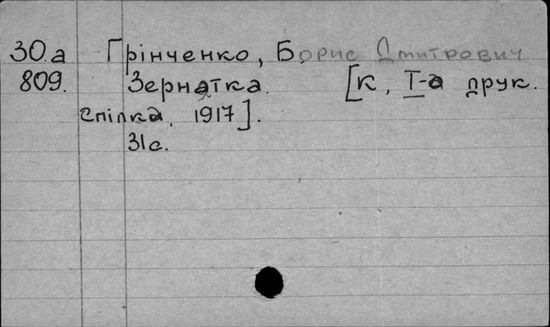 30.а Грінченко, Борис Дмитрович
809. Зернятка. [К, I-а друк.
спілка, 1917].
31с.